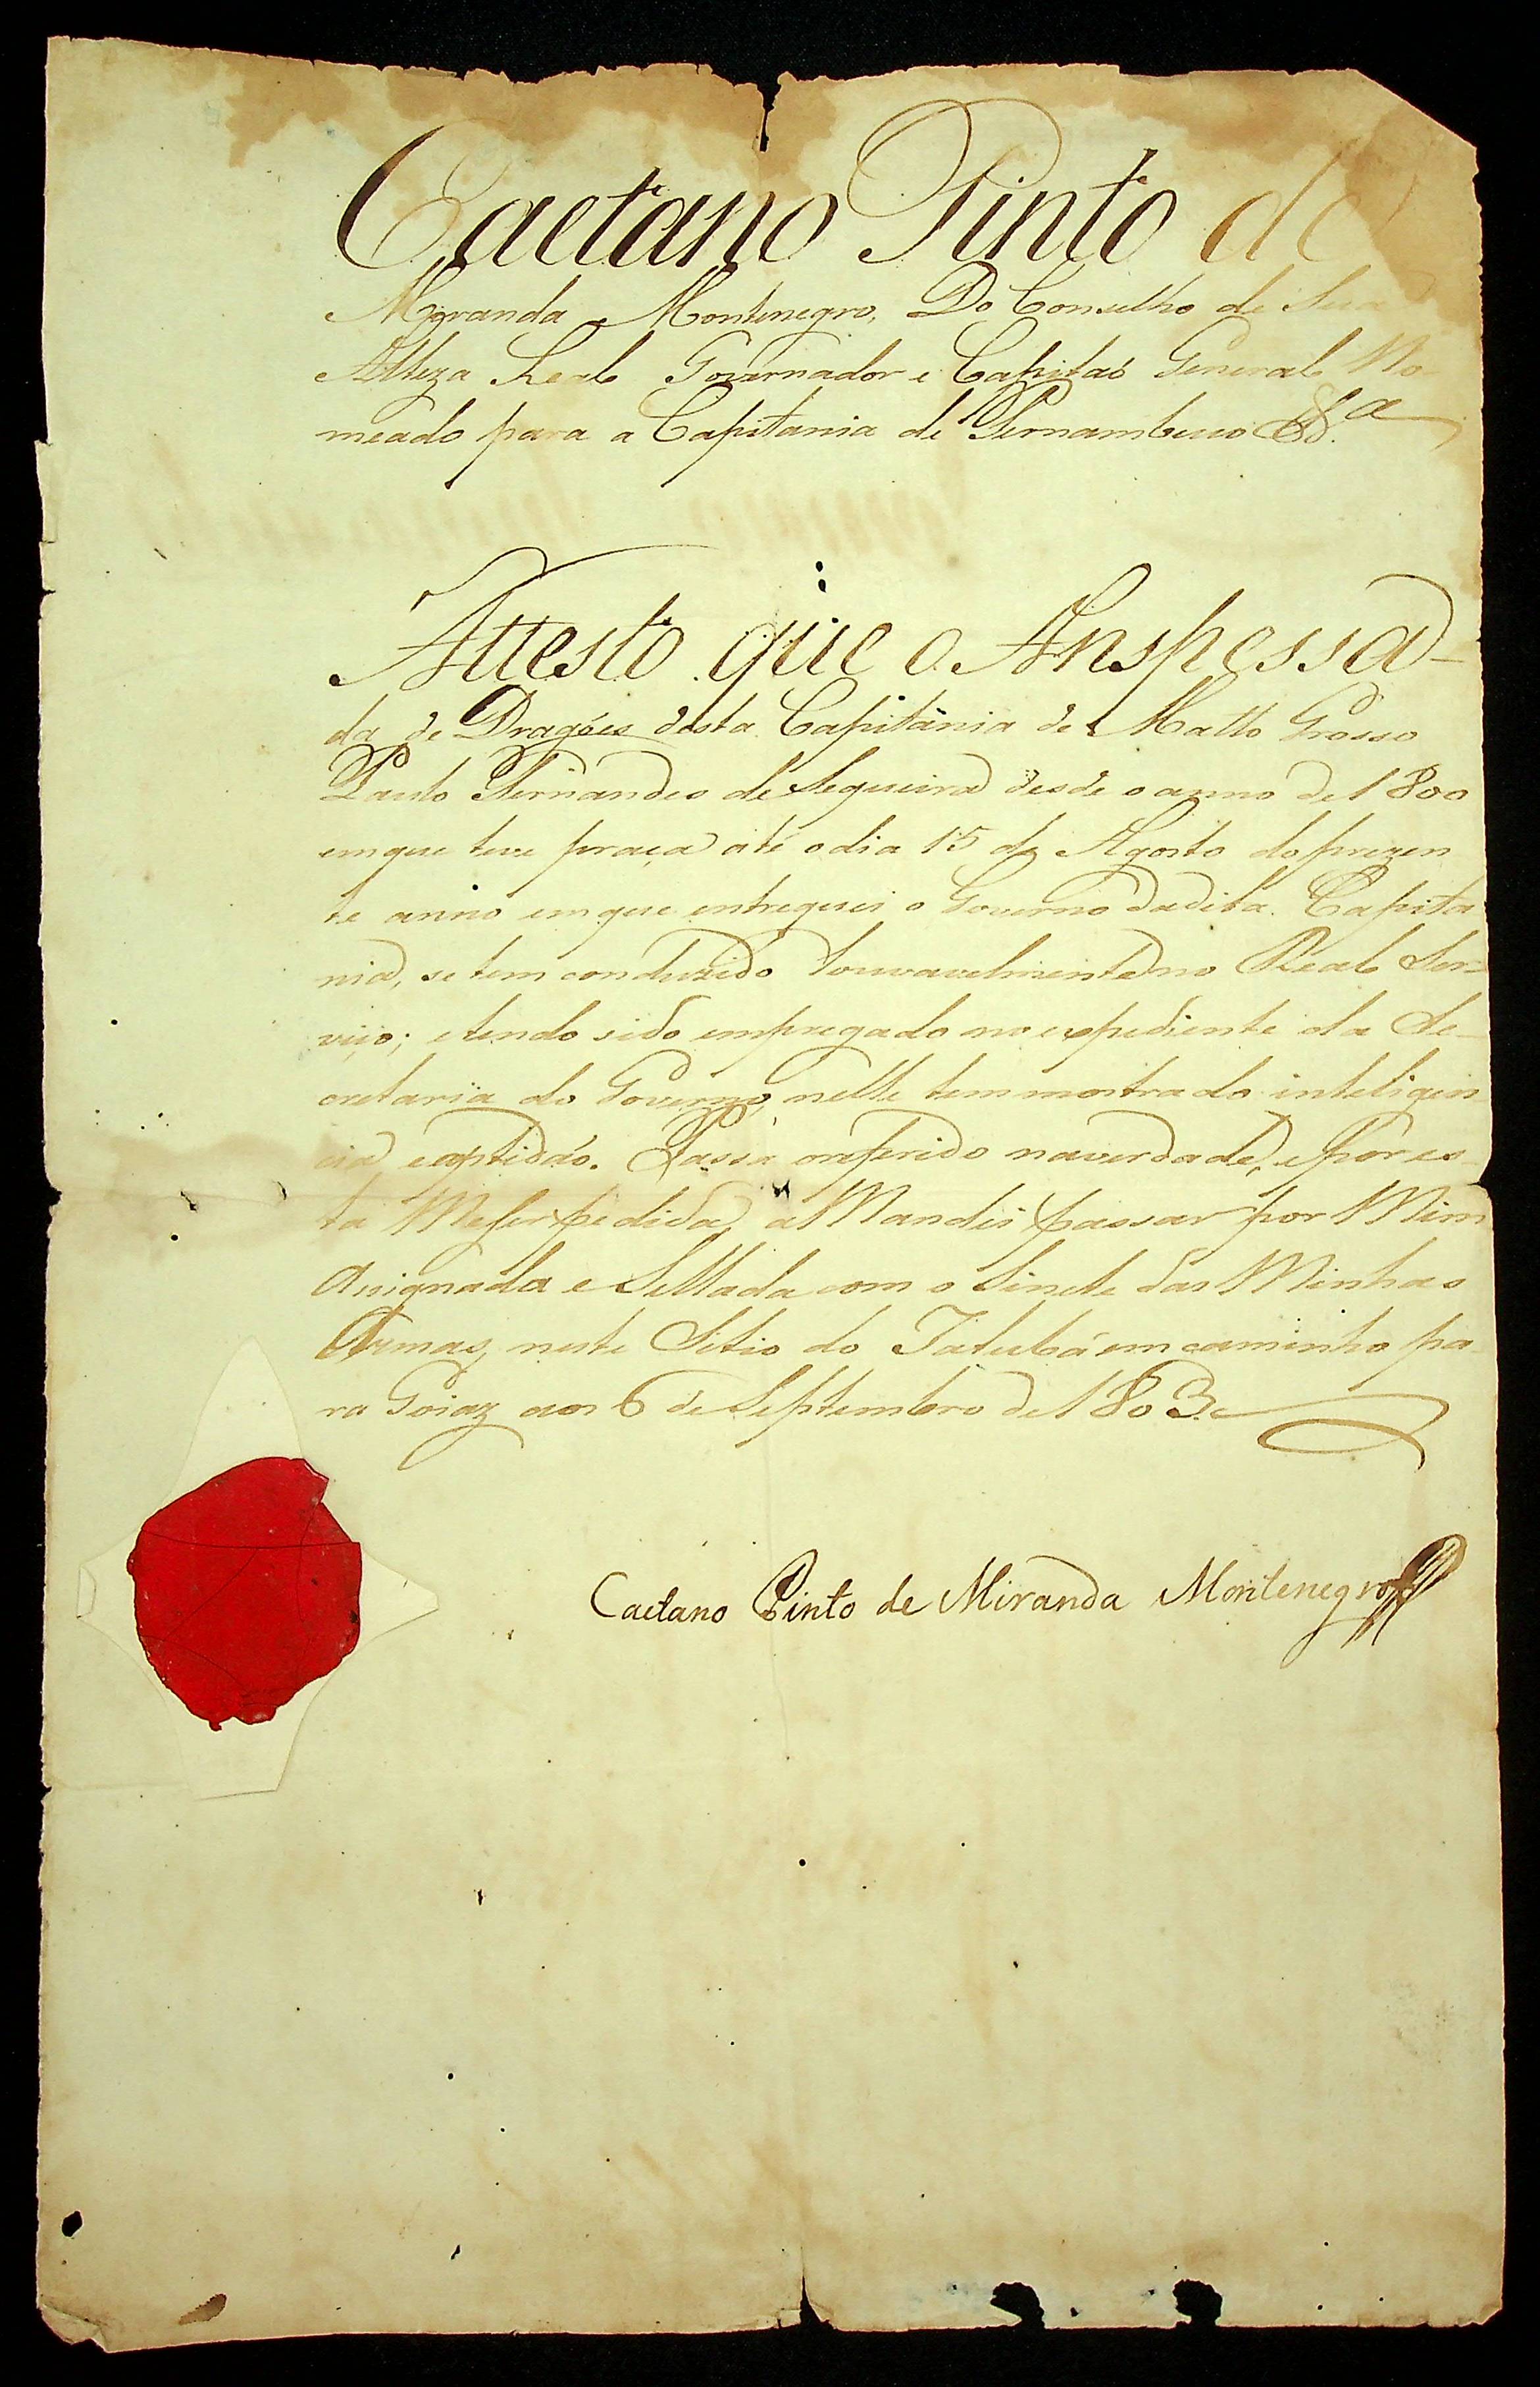 Caetano Pinto de
Miranda Montenegro, Do Conselho de Sua
Alteza Real Governador e Capitaõ General No-
meado para a Capitania de Pernambuco &.ª
Attesto que o Anspessa-
da de Dragões desta Capitania de Matto Grosso
Paulo Fernandes de Sequeira desde o anno de 1800
em que teve praça até o dia 15 de Agosto do prezen
te anno em que entreguei o Governo da dita Capita
nia, se tem conduzido louvavelmente no Real Ser-
viço; e tendo sido empregado no expediente da Se-
cretaria do Governo, nelle tem mostrado inteligen
cia e aptidaõ. Passa o referido na verdade, e por es-
ta Me ser pedida, a Mandei passar por Mim
Asignada e Sellada com o Sinete das Minhas
Armas, neste Sitio do Jatubá em caminho pa-
ra Goiaz aos 6 de Septembro de 1803.
Caetano Pinto de Miranda Montenegro